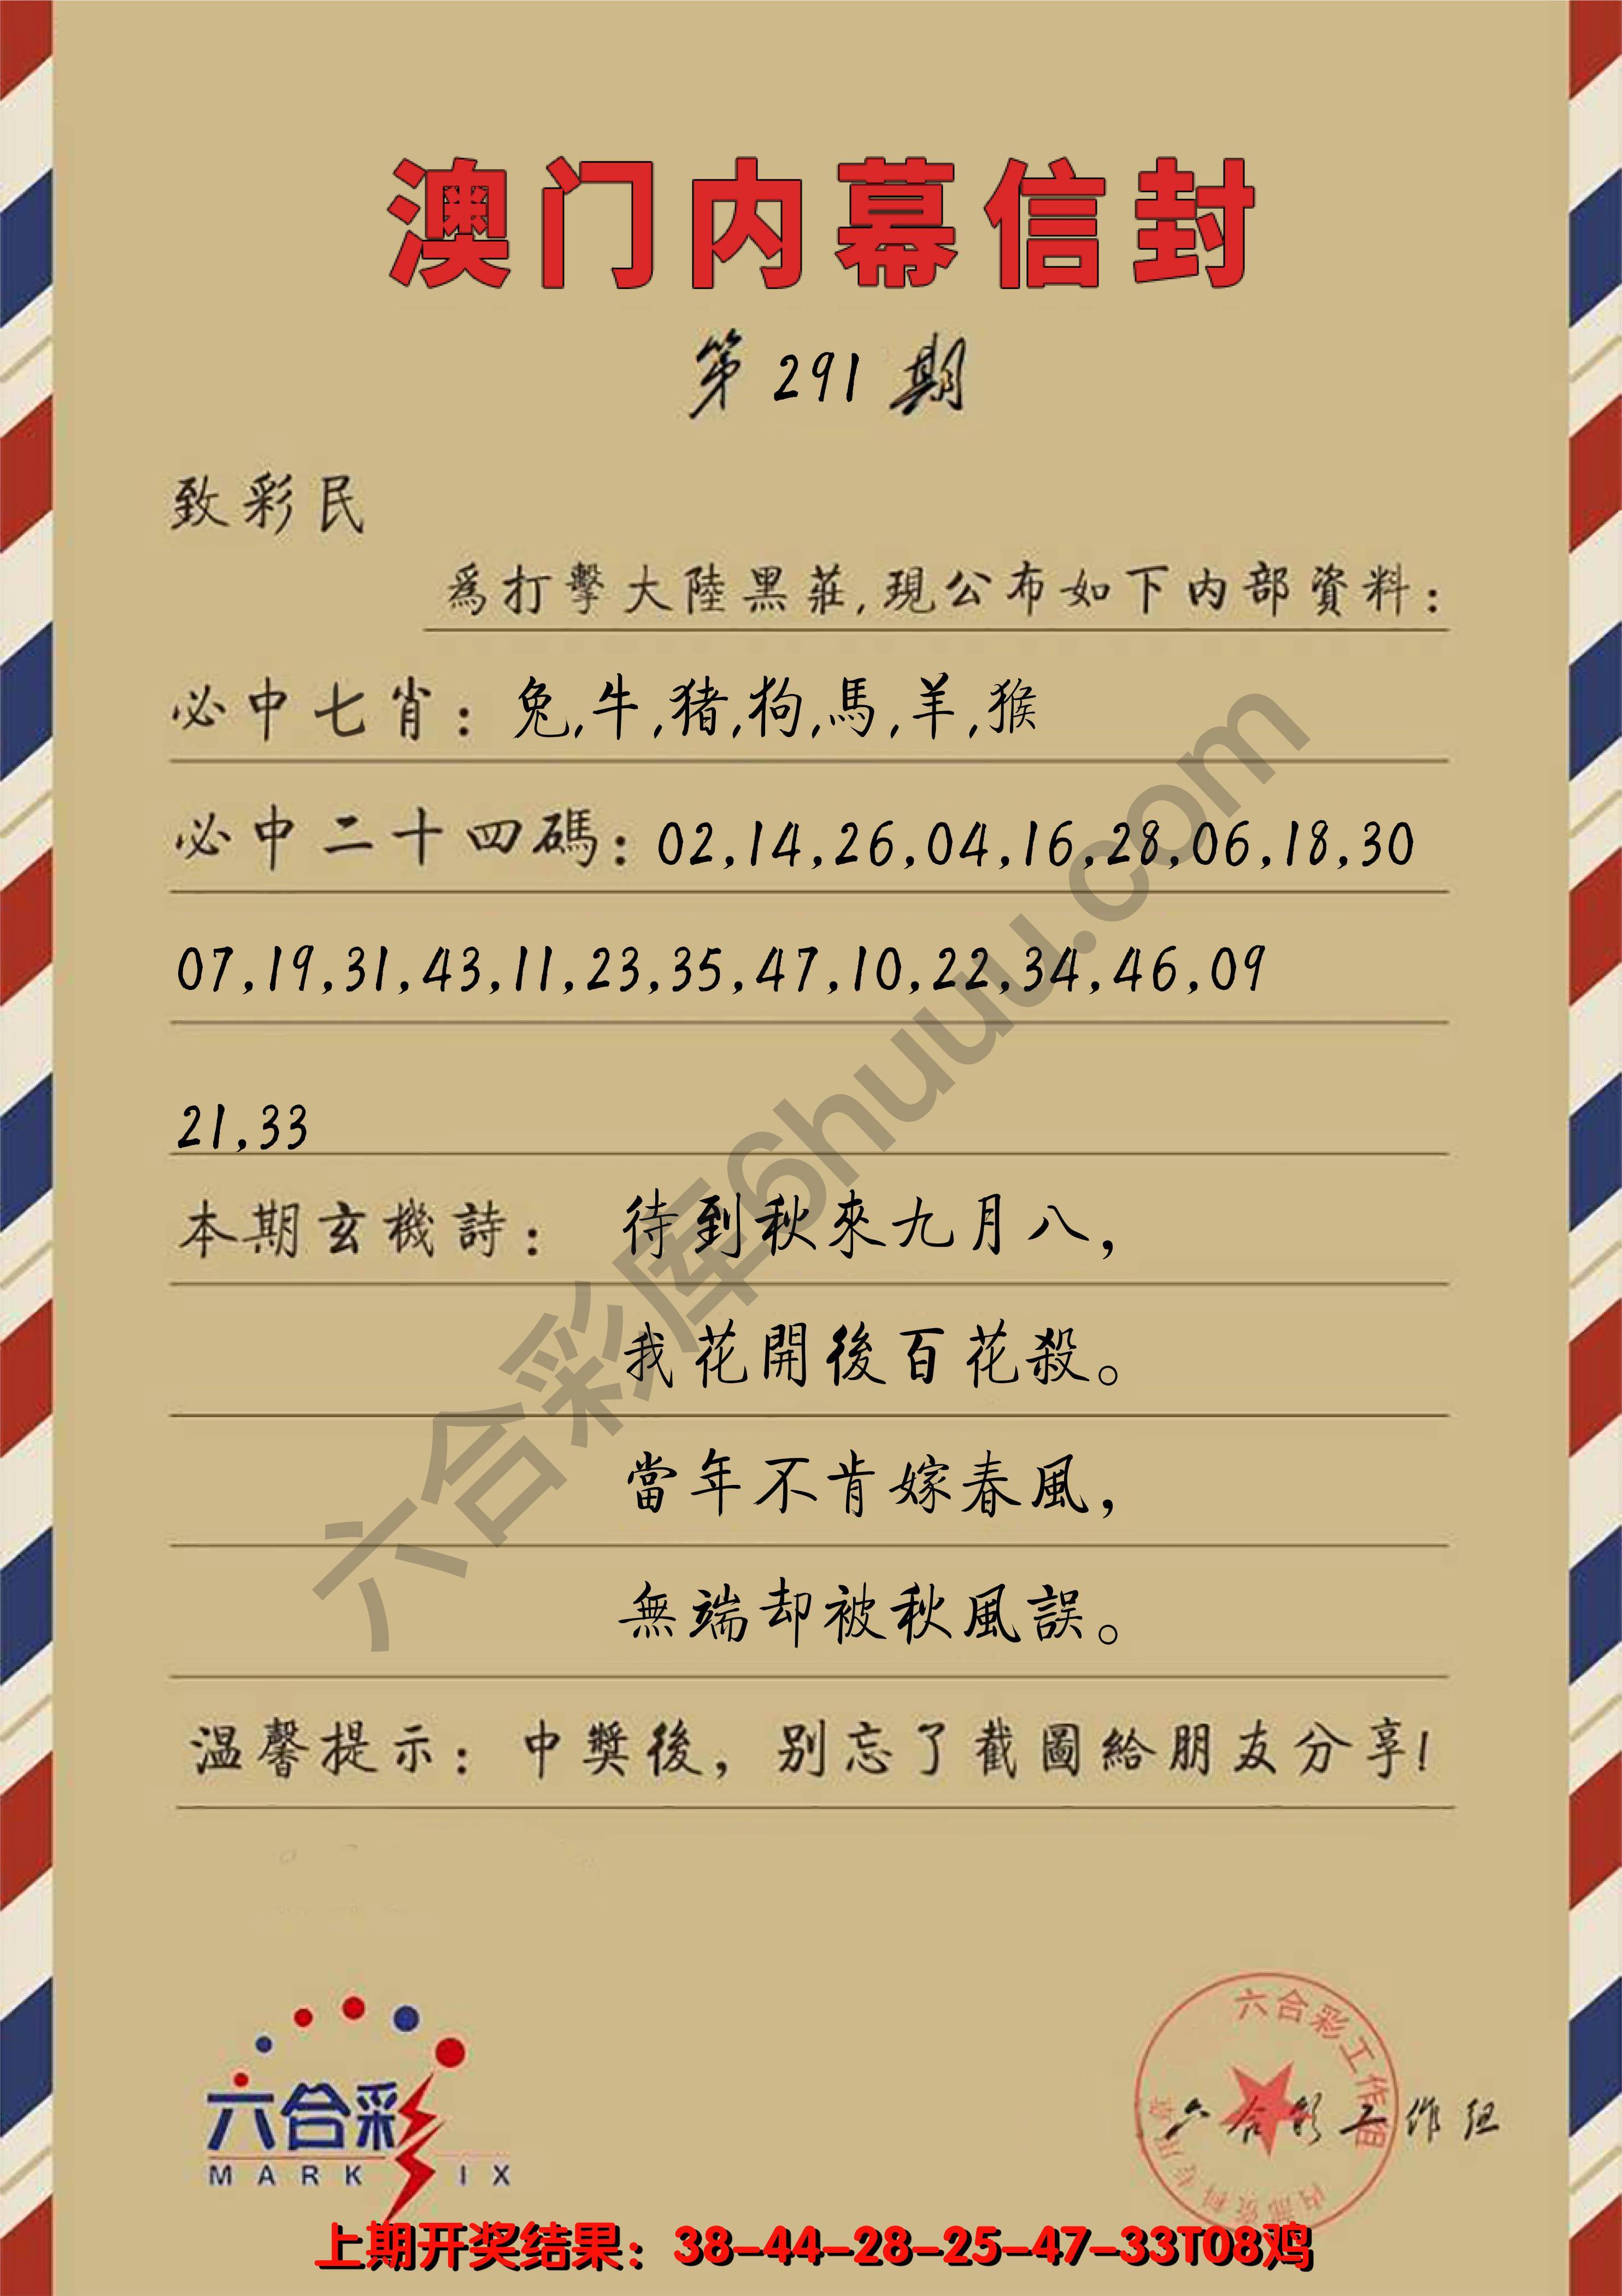 澳门内幕信封
第291期
致彩民
爲打擊大陸黑莊,現公布如下内部資料:
必中七肖: 兔,牛,猪,狗,馬,羊,猴
必中二十四碼: 02,14,26,04,16,28,06,18,30
07,19,31,43,11,23,35,47,10,22,34,46,09
21,33
本期玄機詩: 待到秋來九月八,
我花開後百花殺。
當年不肯嫁春風,
無端却被秋風誤。
温馨提示: 中獎後, 别忘了截圖給朋友分享!
六合彩库6huuu.com
六合彩
MARK IX
六合彩工作组
六合彩工作组
上期开奖结果: 38-44-28-25-47-33T08鸡